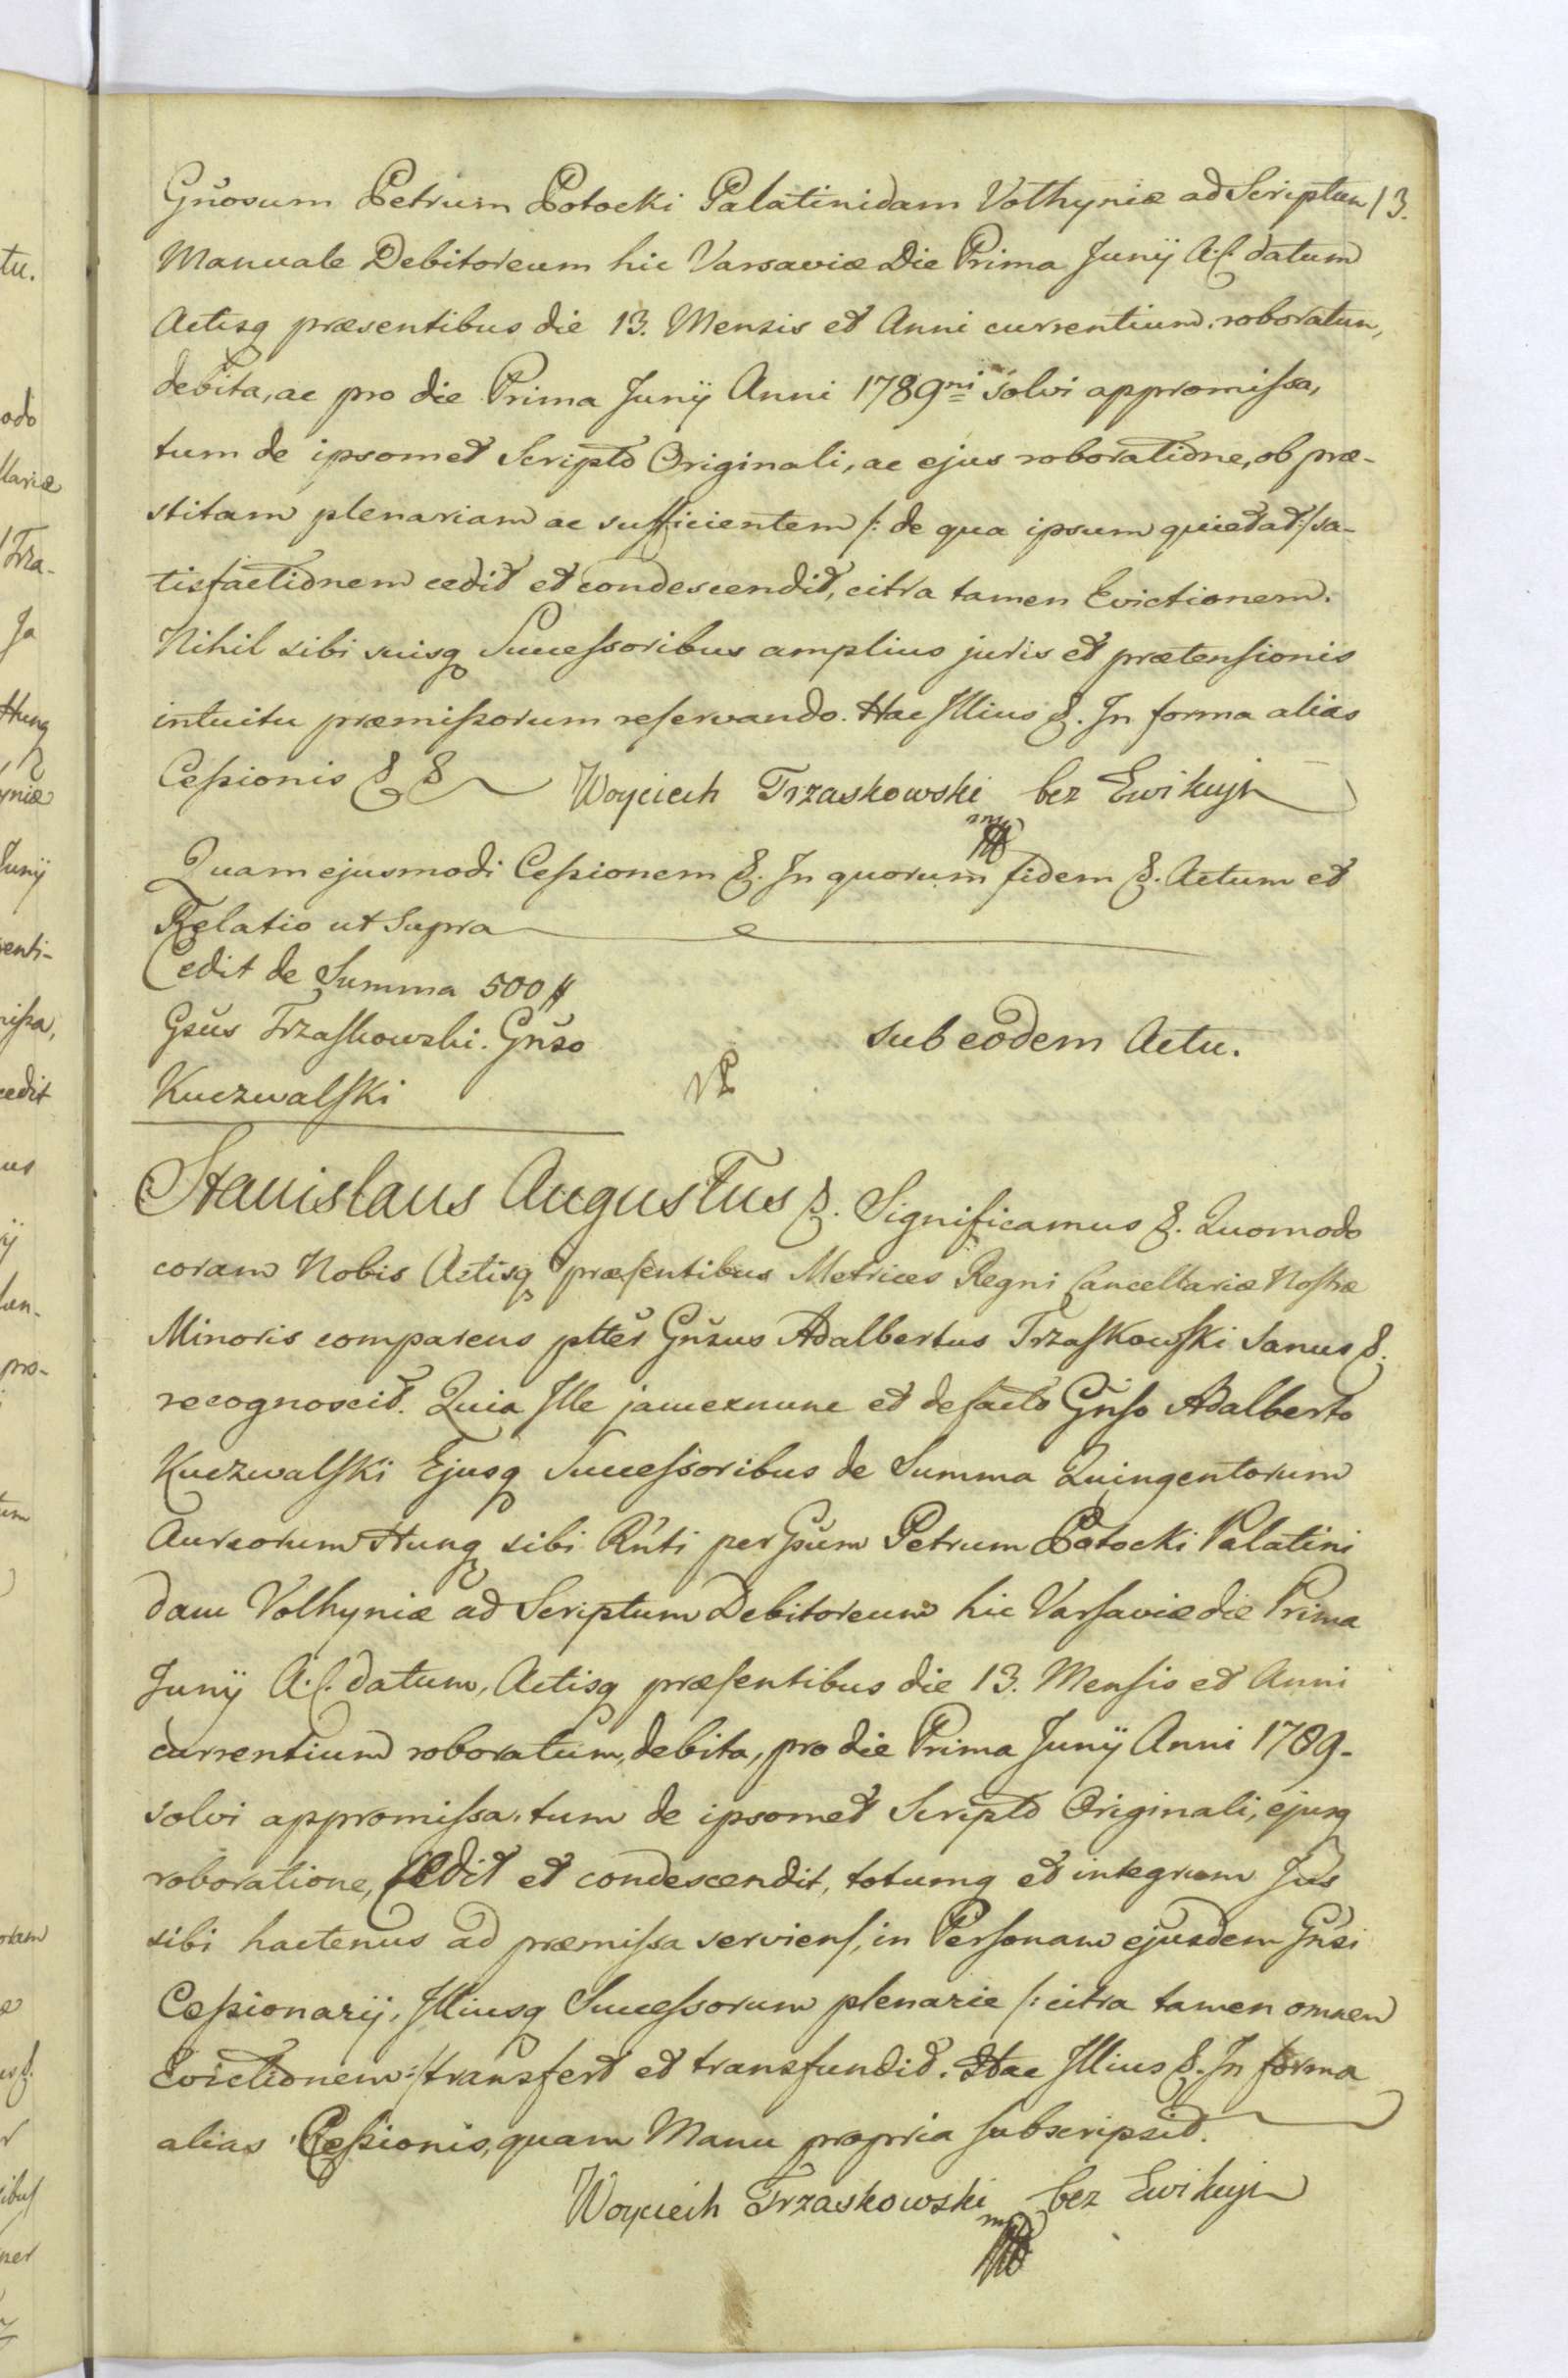 Gnosum Petrum Potocki Palatinidam Volhyniæ ad Scriptum 13.
Manuale Debitoreum hic Varsaviæ Die Prima Junij A: C. datum
Actisq præsentibus die 13. Mensis et Anni currentium roboratum,
debita, ac pro die Prima Junij Anni 1789ni solvi appromissa,
tum de ipsomet Scripto Originali, ac ejus roboratione, ob præ-
stitam plenariam ac sufficientem /: de qua ipsum quietat :/ sa-
tisfactionem cedit et condescendit, citra tamen Evictionem.
Nihil sibi suisq Successoribus amplius juris et prætensionis
intuitu præmissorum reservando. Hac Illius &. In forma alias
Cessionis & & Woyciech Trzaskowski bez Ewikcyi
mp
Quam ejusmodi Cessionem &. In quorum fidem &. Actum et
Relatio ut Supra
Cedit de Summa 500 #
Gsus Trzaskowski. Gnso
sub eodem Actu.
Kuczwalski
Stanislaus Augustus &. Significamus &. Quomodo
coram Nobis Actisq præsentibus Metrices Regni Cancellariæ Nostræ
Minoris comparens ptter Gnsus Adalbertus Trzaskowski Sanus &.
recognoscit. Quia Ille jam exnunc et defacto Gnso Adalberto
Kuczwalski Ejusq Successoribus de Summa Quingentorum
Aureorum Hung sibi Rnti per Gsum Petrum Potocki Palatini
dam Volhyniæ ad Scriptum Debitoreum hic Varsaviæ die Prima
Junij A: C. datum, Actisq præsentibus die 13. Mensis et Anni
currentium roboratum, debita, pro die Prima Junij Anni 1789.
solvi appromissa, tum de ipsomet Scripto Originali, ejusq
roboratione, Cedit et condescendit, totumq et integrum Jus
sibi hactenus ad præmissa serviens, in Personam ejusdem Gnsi
Cessionarij, Illiusq Successorum plenarie /: citra tamen omnem
Evictionem :/ transfert et transfundit. Hac Illius &. In forma
alias Cessionis, quam Manu propria subscripsit.
Woyciech Trzaskowski bez Ewikcyi
mp